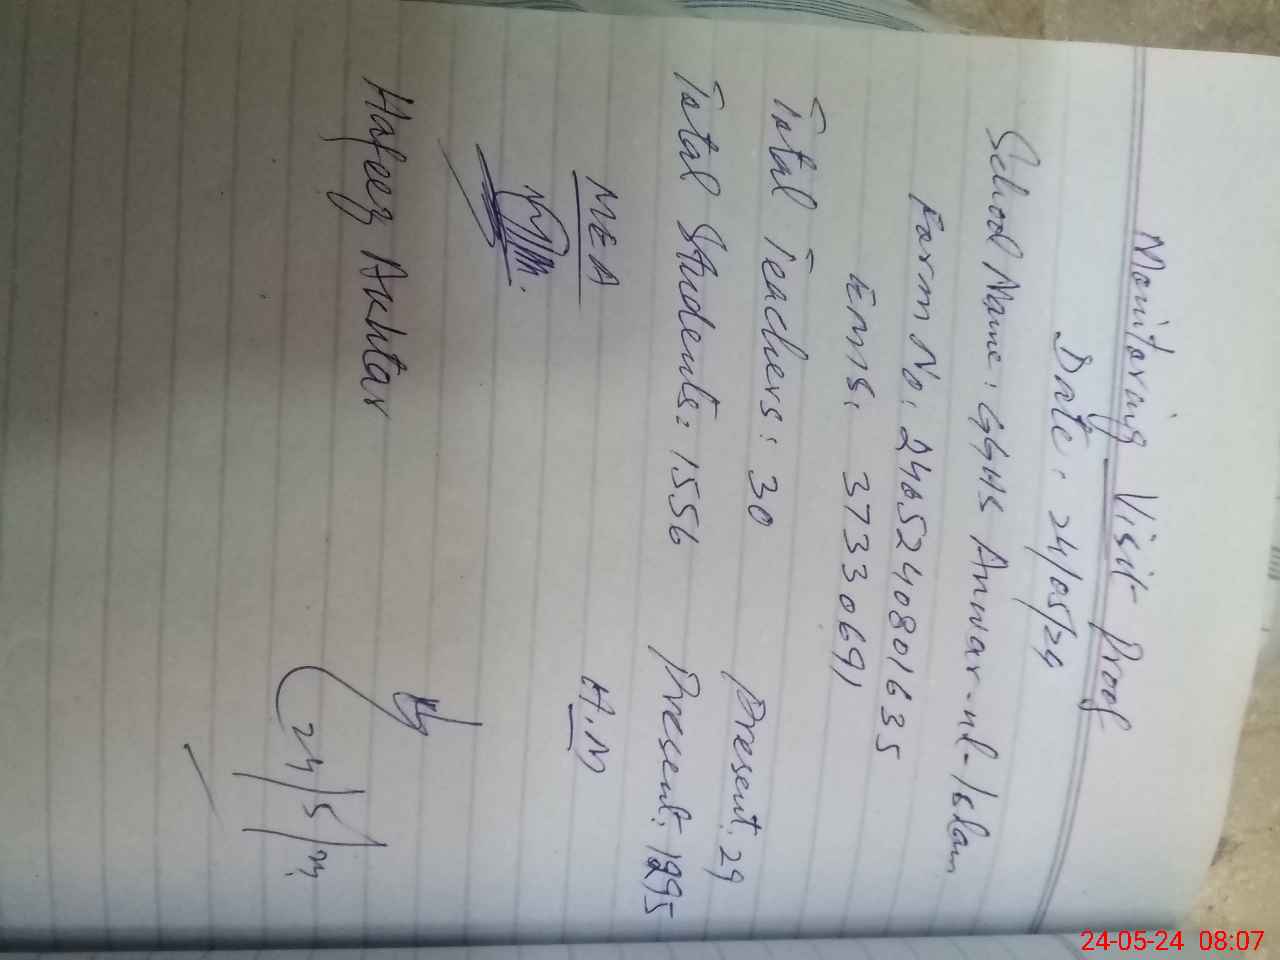 Monitoring Visit Proof
Date: 24/05/24
School Name: GGHS Anwar-ul-Islam
Form No: 2405240801635
EMIS: 37330691
Total Teachers: 30 Present: 29
Total Students: 1556 Present: 1295
MEA H.M
Hafeez Akhtar
24/5/24
24-05-24 08:07